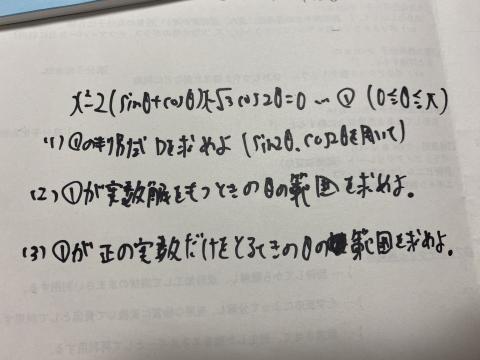 x²-2(sinθ+cosθ)x-√3cos2θ=0 ー ① (0≦θ≦π)
(1) ①の判別式Dを求めよ (sin2θ, cos2θを用いて)
(2) ①が実数解をもつときのθの範囲を求めよ。
(3) ①が正の実数だけをとるときのθの範囲を求めよ。